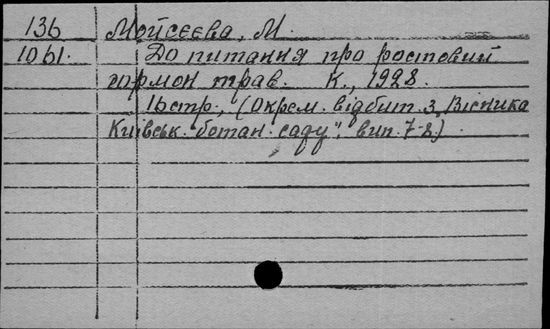 136 Мойсеєва, М.
1061. До питання про ростовий
гормон трав. К., 1928.
16стр., (Окрем. відбит. з „Вісника
Київськ. ботан. саду", вип. 7-8)